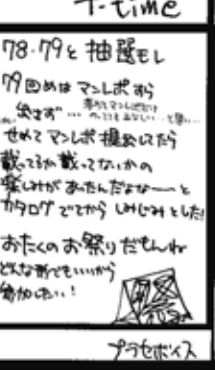 T-time
78・79と抽選モレ
79回めはマンレポすら
出さず…
せめてマンレポ提出してたら
載ってるか載ってないかの
楽しみがあったんだよな――と
カタログでてからしみじみとした!
おたくのお祭りだもんね
どんな形でもいいから
参加したい!
プラセボイス